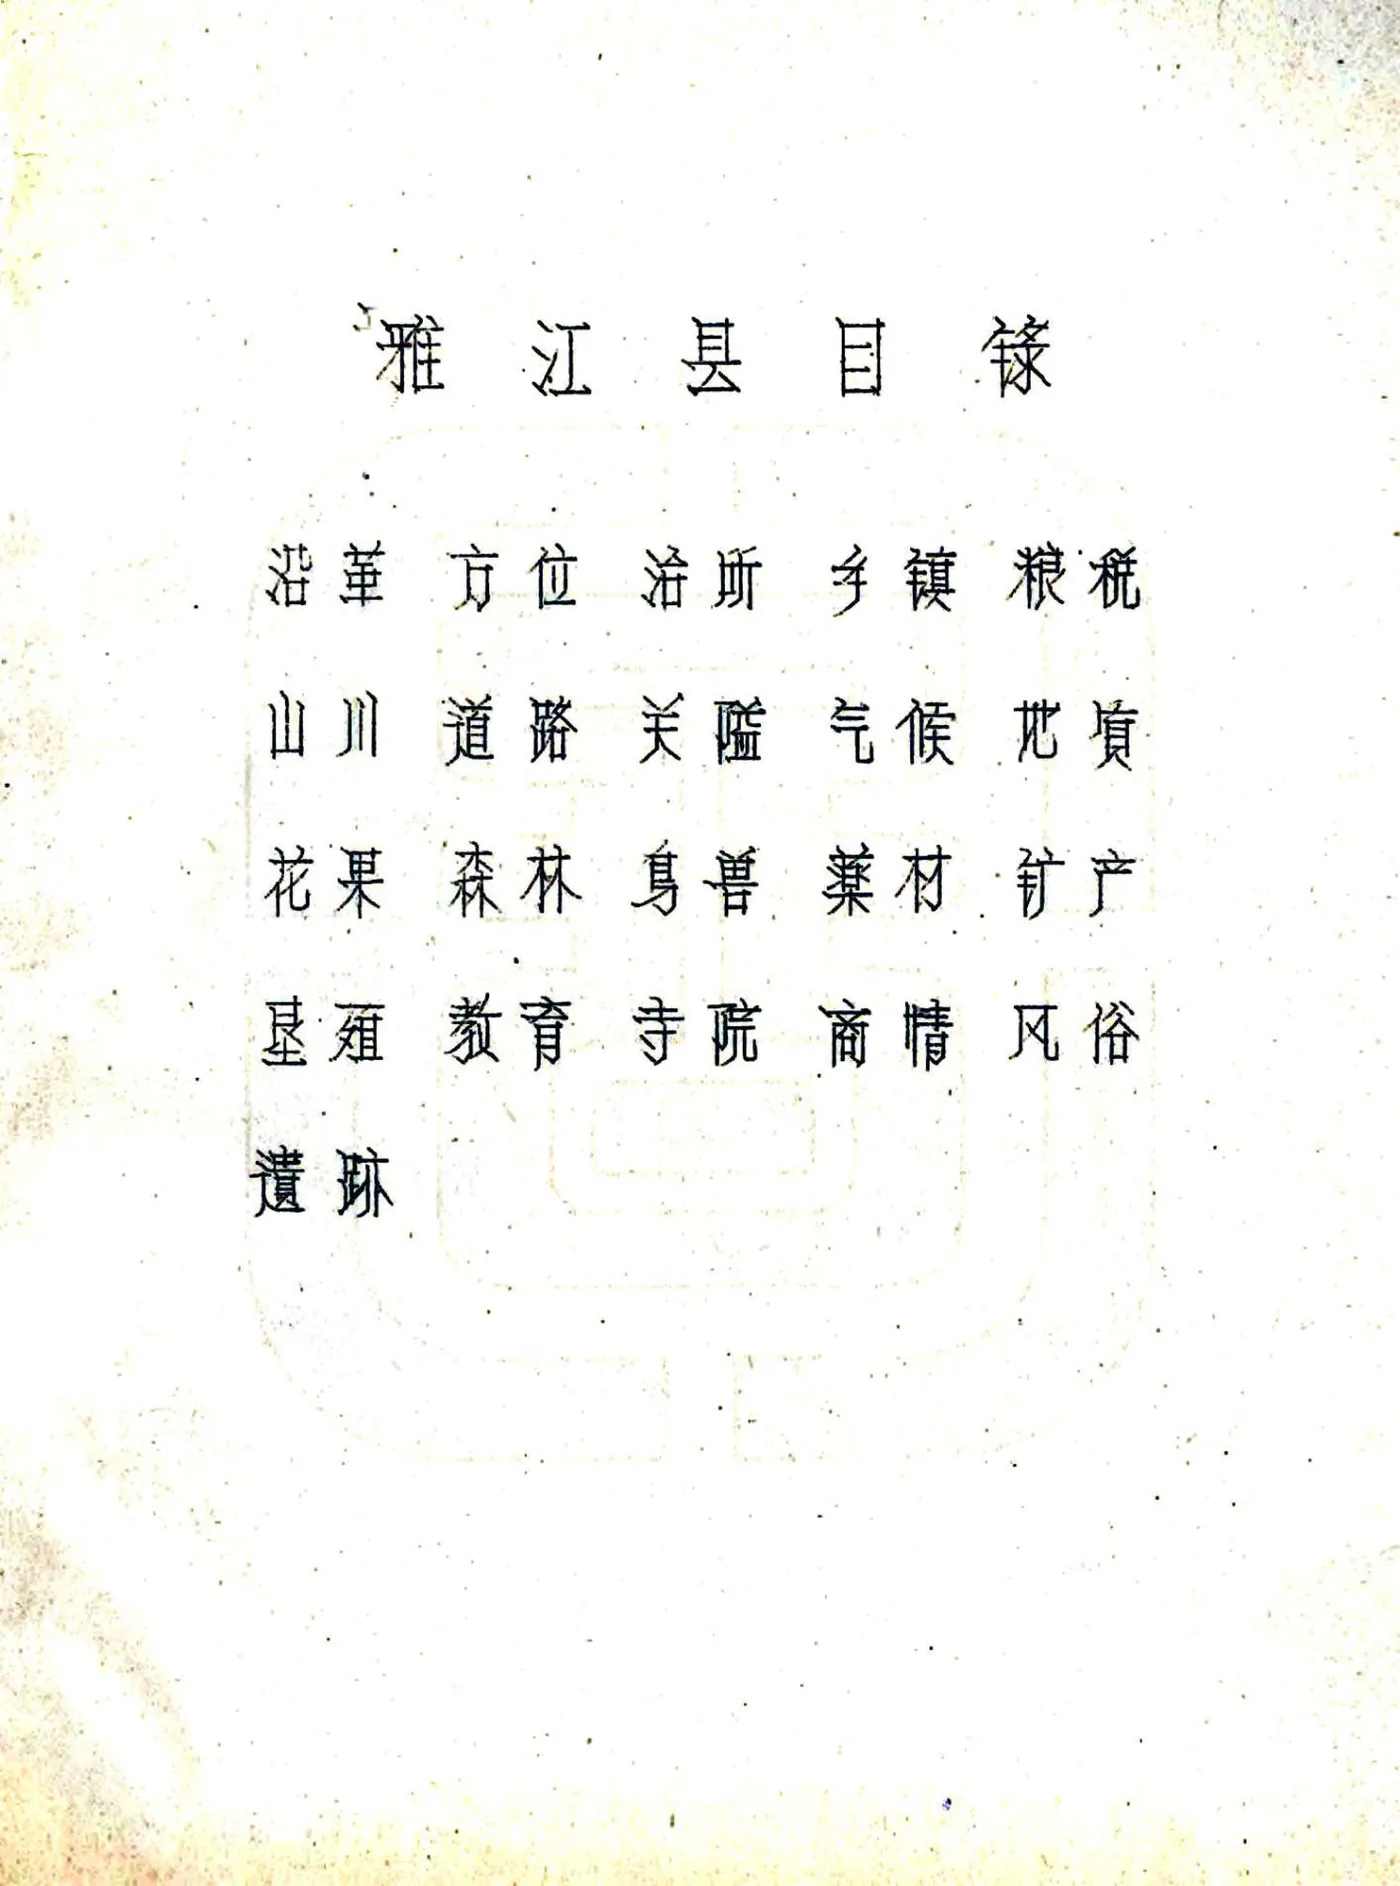 雅江县目録
沿革 方位 治所 乡镇 粮税
山川 道路 关隘 气候 地質
花果 森林 鸟兽 薬材 矿产
垦殖 教育 寺院 商情 风俗
遺跡